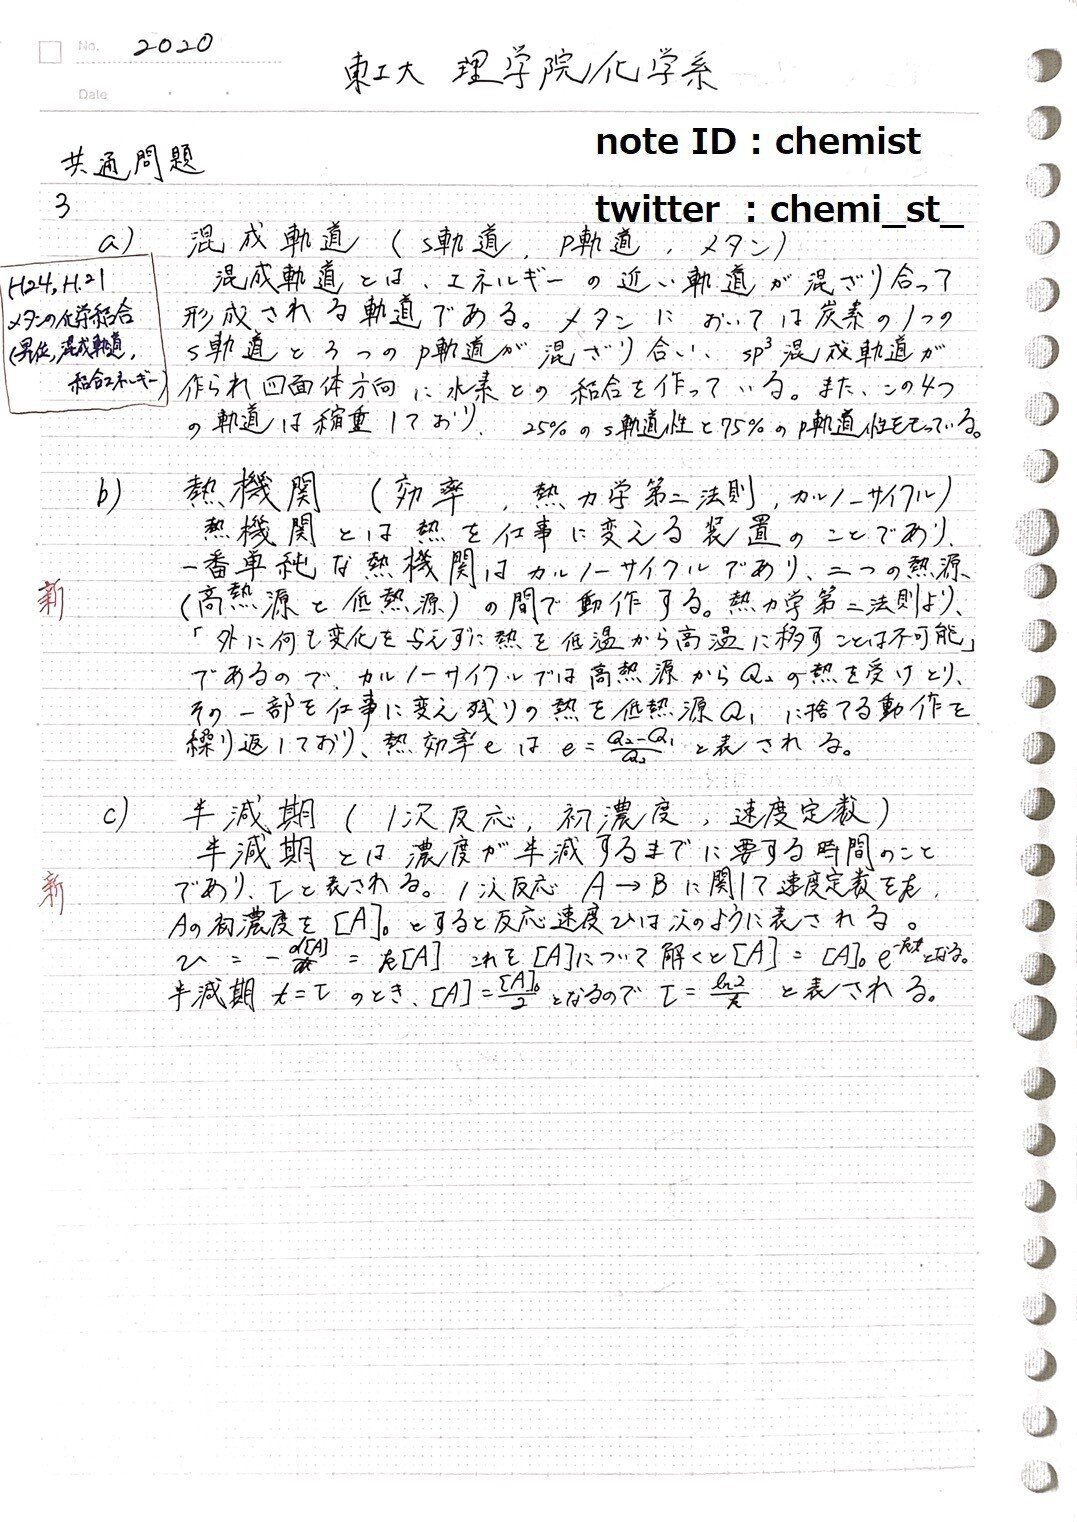 No. 2020
Date
東工大 理学院/化学系
note ID : chemist
twitter : chemi_st_
共通問題
3
a) 混成軌道 (s軌道, p軌道, メタン)
混成軌道とは、エネルギーの近い軌道が混ざり合って
形成される軌道である。メタンにおいては炭素の1つの
s軌道と3つのp軌道が混ざり合い、sp³混成軌道が
作られ四面体方向に水素との結合を作っている。また、この4つ
の軌道は縮重しており、25%のs軌道性と75%のp軌道性をもっている。
H24, H.21
メタンの化学結合
(昇位, 混成軌道,
結合エネルギー)
b) 熱機関 (効率, 熱力学第二法則, カルノーサイクル)
熱機関とは熱を仕事に変える装置のことであり、
一番単純な熱機関はカルノーサイクルであり、二つの熱源
新
(高熱源と低熱源)の間で動作する。熱力学第二法則より、
「外に何も変化を与えずに熱を低温から高温に移すことは不可能」
であるので、カルノーサイクルでは高熱源からQ₂の熱を受けとり、
その一部を仕事に変え残りの熱を低熱源Q₁に捨てる動作を
繰り返しており、熱効率eは e = (Q₂-Q₁)/Q₂ と表される。
c) 半減期 (1次反応, 初濃度, 速度定数)
半減期とは濃度が半減するまでに要する時間のこと
新
であり、τと表される。1次反応 A→B に関して速度定数をk,
Aの初濃度を[A]₀とすると反応速度vは次のように表される。
v = -d[A]/dt = k[A] これを[A]について解くと[A] = [A]₀e^-kt となる。
半減期 t=τ のとき、[A]=[A]₀/2 となるので τ = ln2/k と表される。